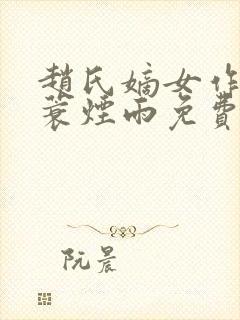 趙氏嫡女作
蓑煙雨免費
阮晨